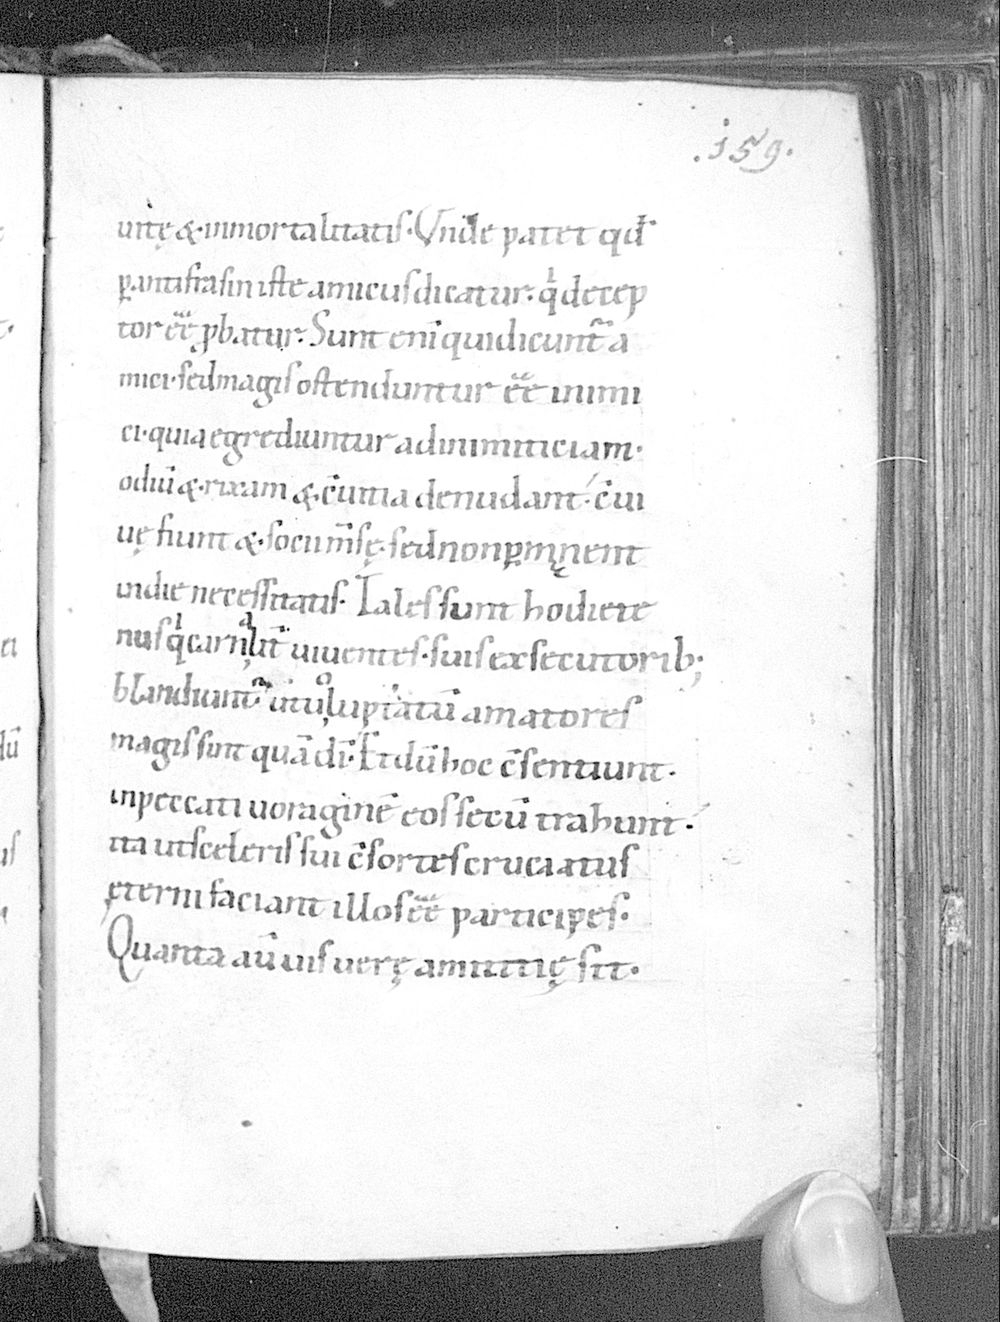 .159.
uitę &·inmortalitatis· Vnde patet qđ·
ꝑantifrasin iste amicus dicatur· qⁱ decep
tor eē͂ ꝓbatur· Sunt eni͂ qui dicunt͂ a
mici· sed magis ostenduntur eē͂ inimi
ci· quia egrediuntur ad inimiticiam·
odiu͂ &·rixam &·c͂uitia denudant· c͂ui
uę fiunt &·socii m͂sę· sed non ꝑmęnent
in die necessitatis· Tales sunt hodie te
nus qⁱ carnalit͂ uiuentes· suis exsecutorib;
blandiunt͂
magis sint qua͂ di͂· Et du͂ hoc c͂sentiunt·
in peccati uoragine͂ eos secu͂ trahunt·
ita ut sceleris sui c͂sortes cruciatus
ęterni faciant illos eē͂ participes·
Quanta au͂ uis uerę amititię sit·